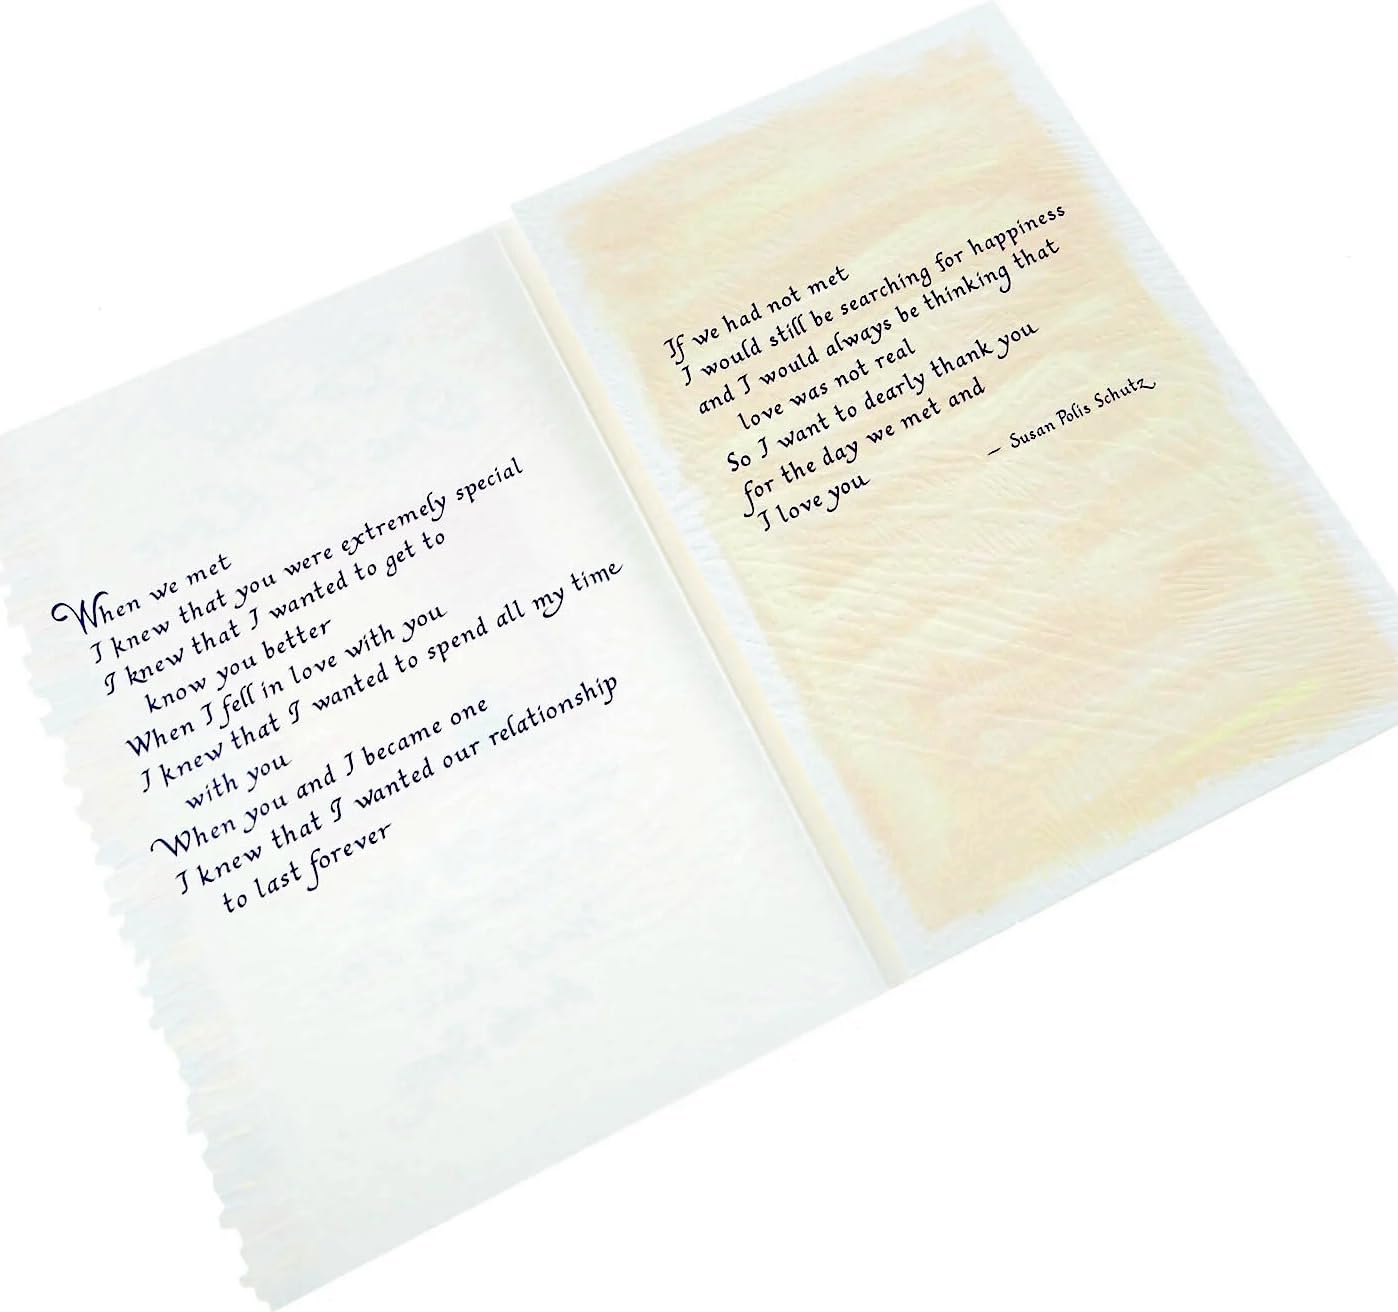 When we met
I knew that you were extremely special
I knew that I wanted to get to
know you better
When I fell in love with you
I knew that I wanted to spend all my time
with you
When you and I became one
I knew that I wanted our relationship
to last forever
If we had not met
I would still be searching for happiness
and I would always be thinking that
love was not real
So I want to dearly thank you
for the day we met and
I love you
— Susan Polis Schutz